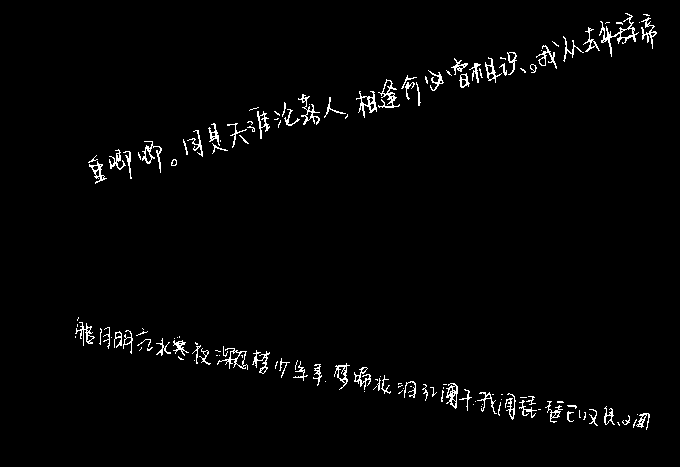 重唧唧。同是天涯沦落人,相逢何必曾相识。我从去年辞帝
船月明江水寒夜深忽梦少年事.梦啼妆泪红阑干.我闻琵琶已叹息又闻